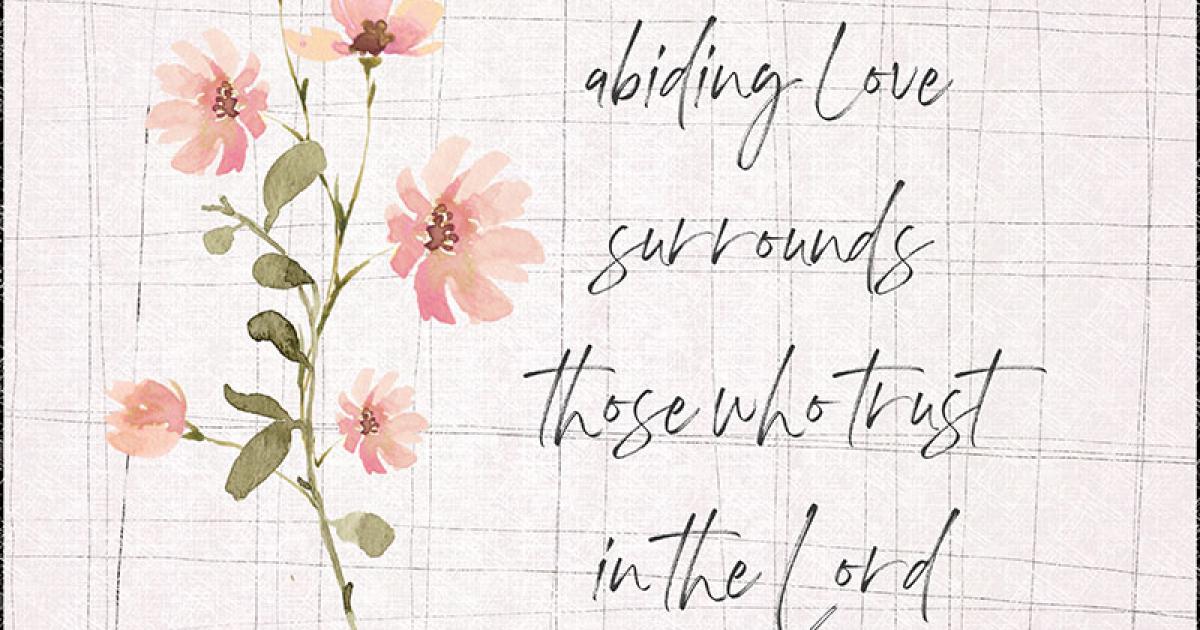 abiding Love
surrounds
those who trust
in the Lord